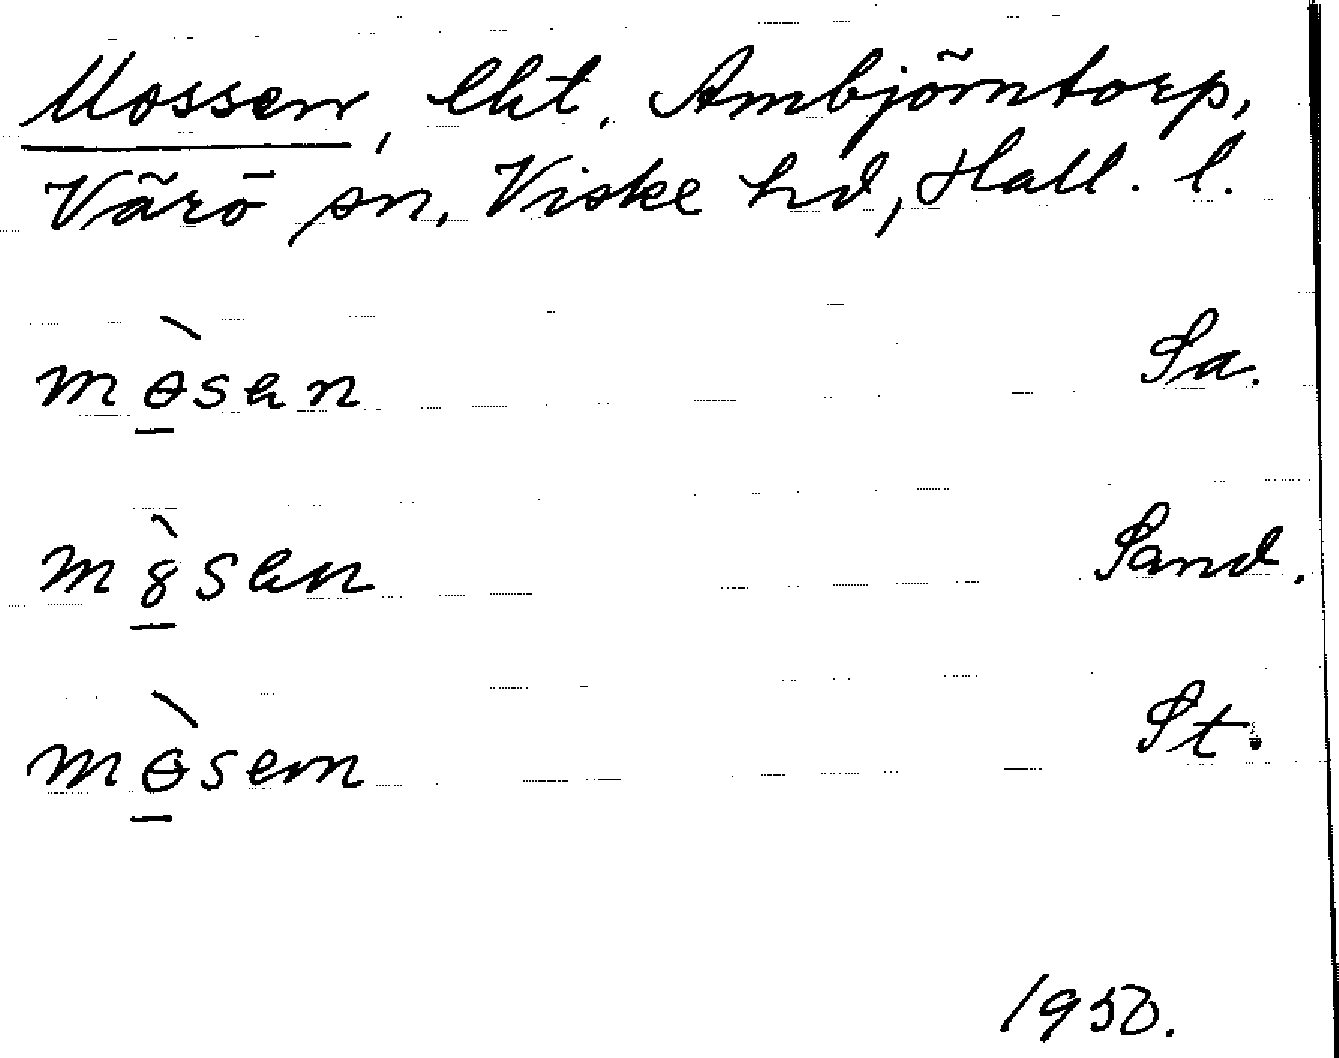 Mossen, lht. Ambjörntorp,
Värö sn, Viske hd, Hall. l.
mɵ̱̀sen Sa.
mò̱sen Sand.
mɵ̱̀sen St.
1950.